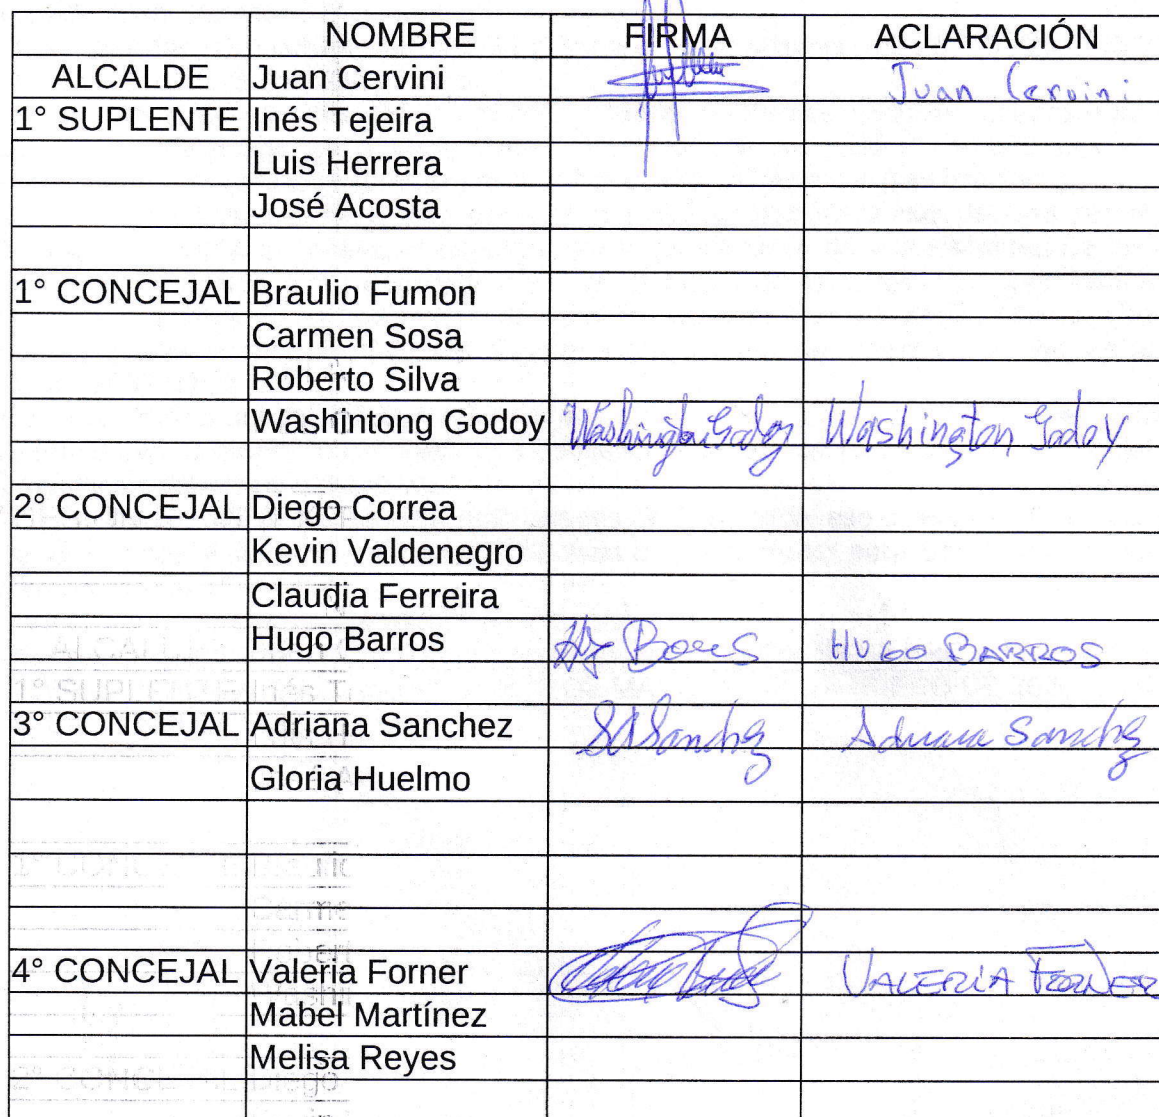 NOMBRE FIRMA ACLARACIÓN
ALCALDE Juan Cervini Juan Cervini
1° SUPLENTE Inés Tejeira
Luis Herrera
José Acosta
1° CONCEJAL Braulio Fumon
Carmen Sosa
Roberto Silva
Washintong Godoy Washington Godoy Washington Godoy
2° CONCEJAL Diego Correa
Kevin Valdenegro
Claudia Ferreira
Hugo Barros HUGO BARROS
3° CONCEJAL Adriana Sanchez Adriana Sanchez
Gloria Huelmo
4° CONCEJAL Valeria Forner VALERIA FORNER
Mabel Martínez
Melisa Reyes